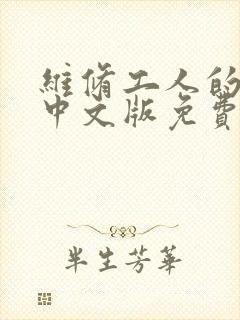 維脩工人的
中文版免費
半生芳華